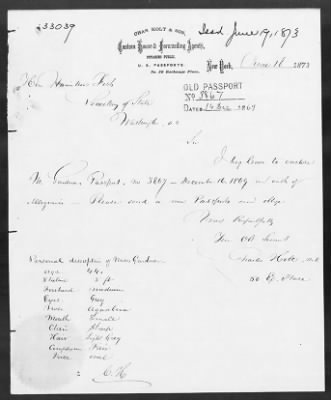 33039
Issd June 19, 1873
CHAS. NOLT & SON,
Custom House & Forwarding Agents,
U. S. PASSPORTS.
New York, June 18 1873
Hon Hamilton Fish
Secretary of State
Washington D.C.
OLD PASSPORT
No 3867
DATED 16 Dec 1869
Sir
I beg leave to enclose
Mr Passport, no 3867 December 16. 1869 oath of
Allegiance Please send a new Passports and oblige
Yours Respectfully
Your Obt Servant
Personal description of
age
Stature 5 ft
Forehead medium
Eyes Grey
Nose Aquiline
Mouth Small
Chin Sharp
Hair Light Grey
Complexion Fair
Face oval
C. H